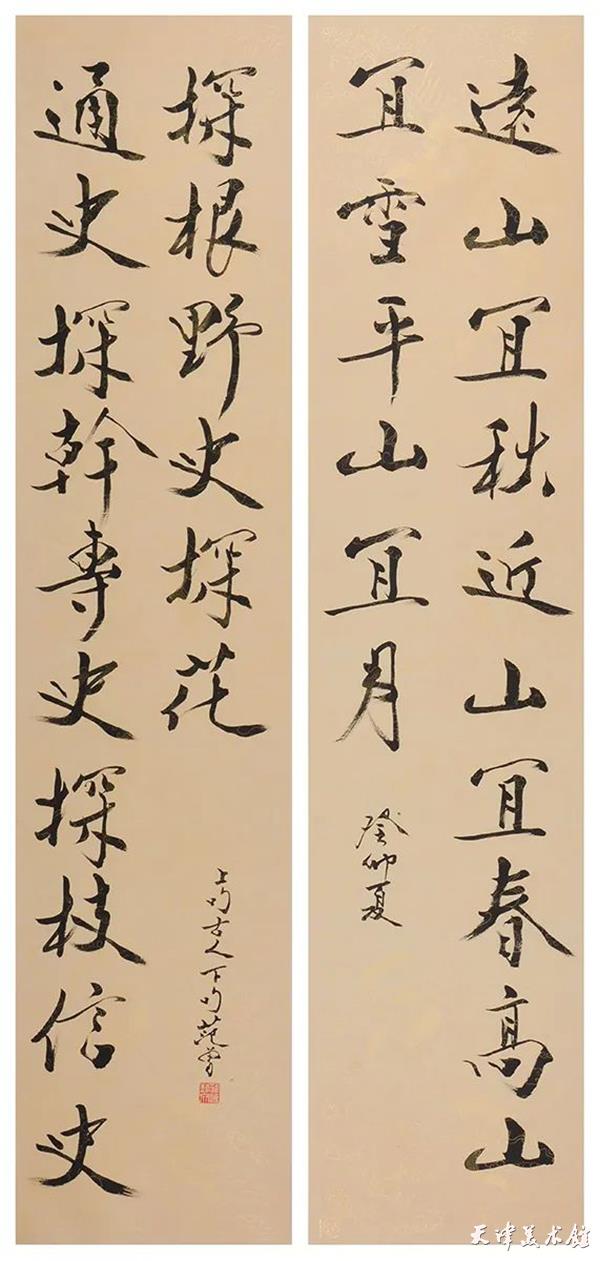 遠山宜秋近山宜春高山
宜雪平山宜月
癸卯夏
通史探幹專史探枝信史
探根野史探花
上句古人下句范曾
天津美术馆